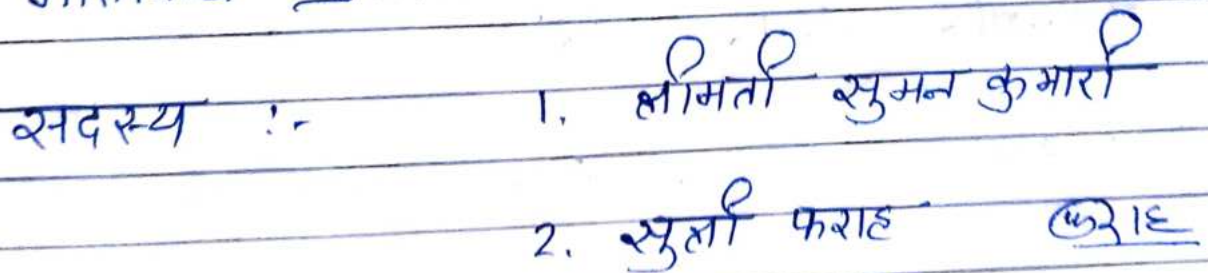 सदस्य :- 1. श्रीमती सुमन कुमारी
2. सुश्री फराह फराह